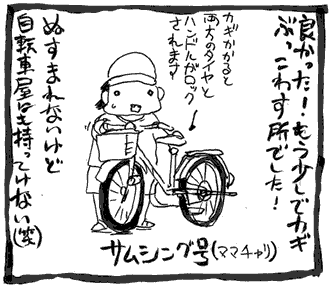 良かった！もう少しでカギ
ぶっこわす所でした！
カギがかかると
両方のタイヤと
ハンドルがロック
されます
ぬすまれないけど
自転車屋にも持ってけない(笑)
サムシング号(ママチャリ)